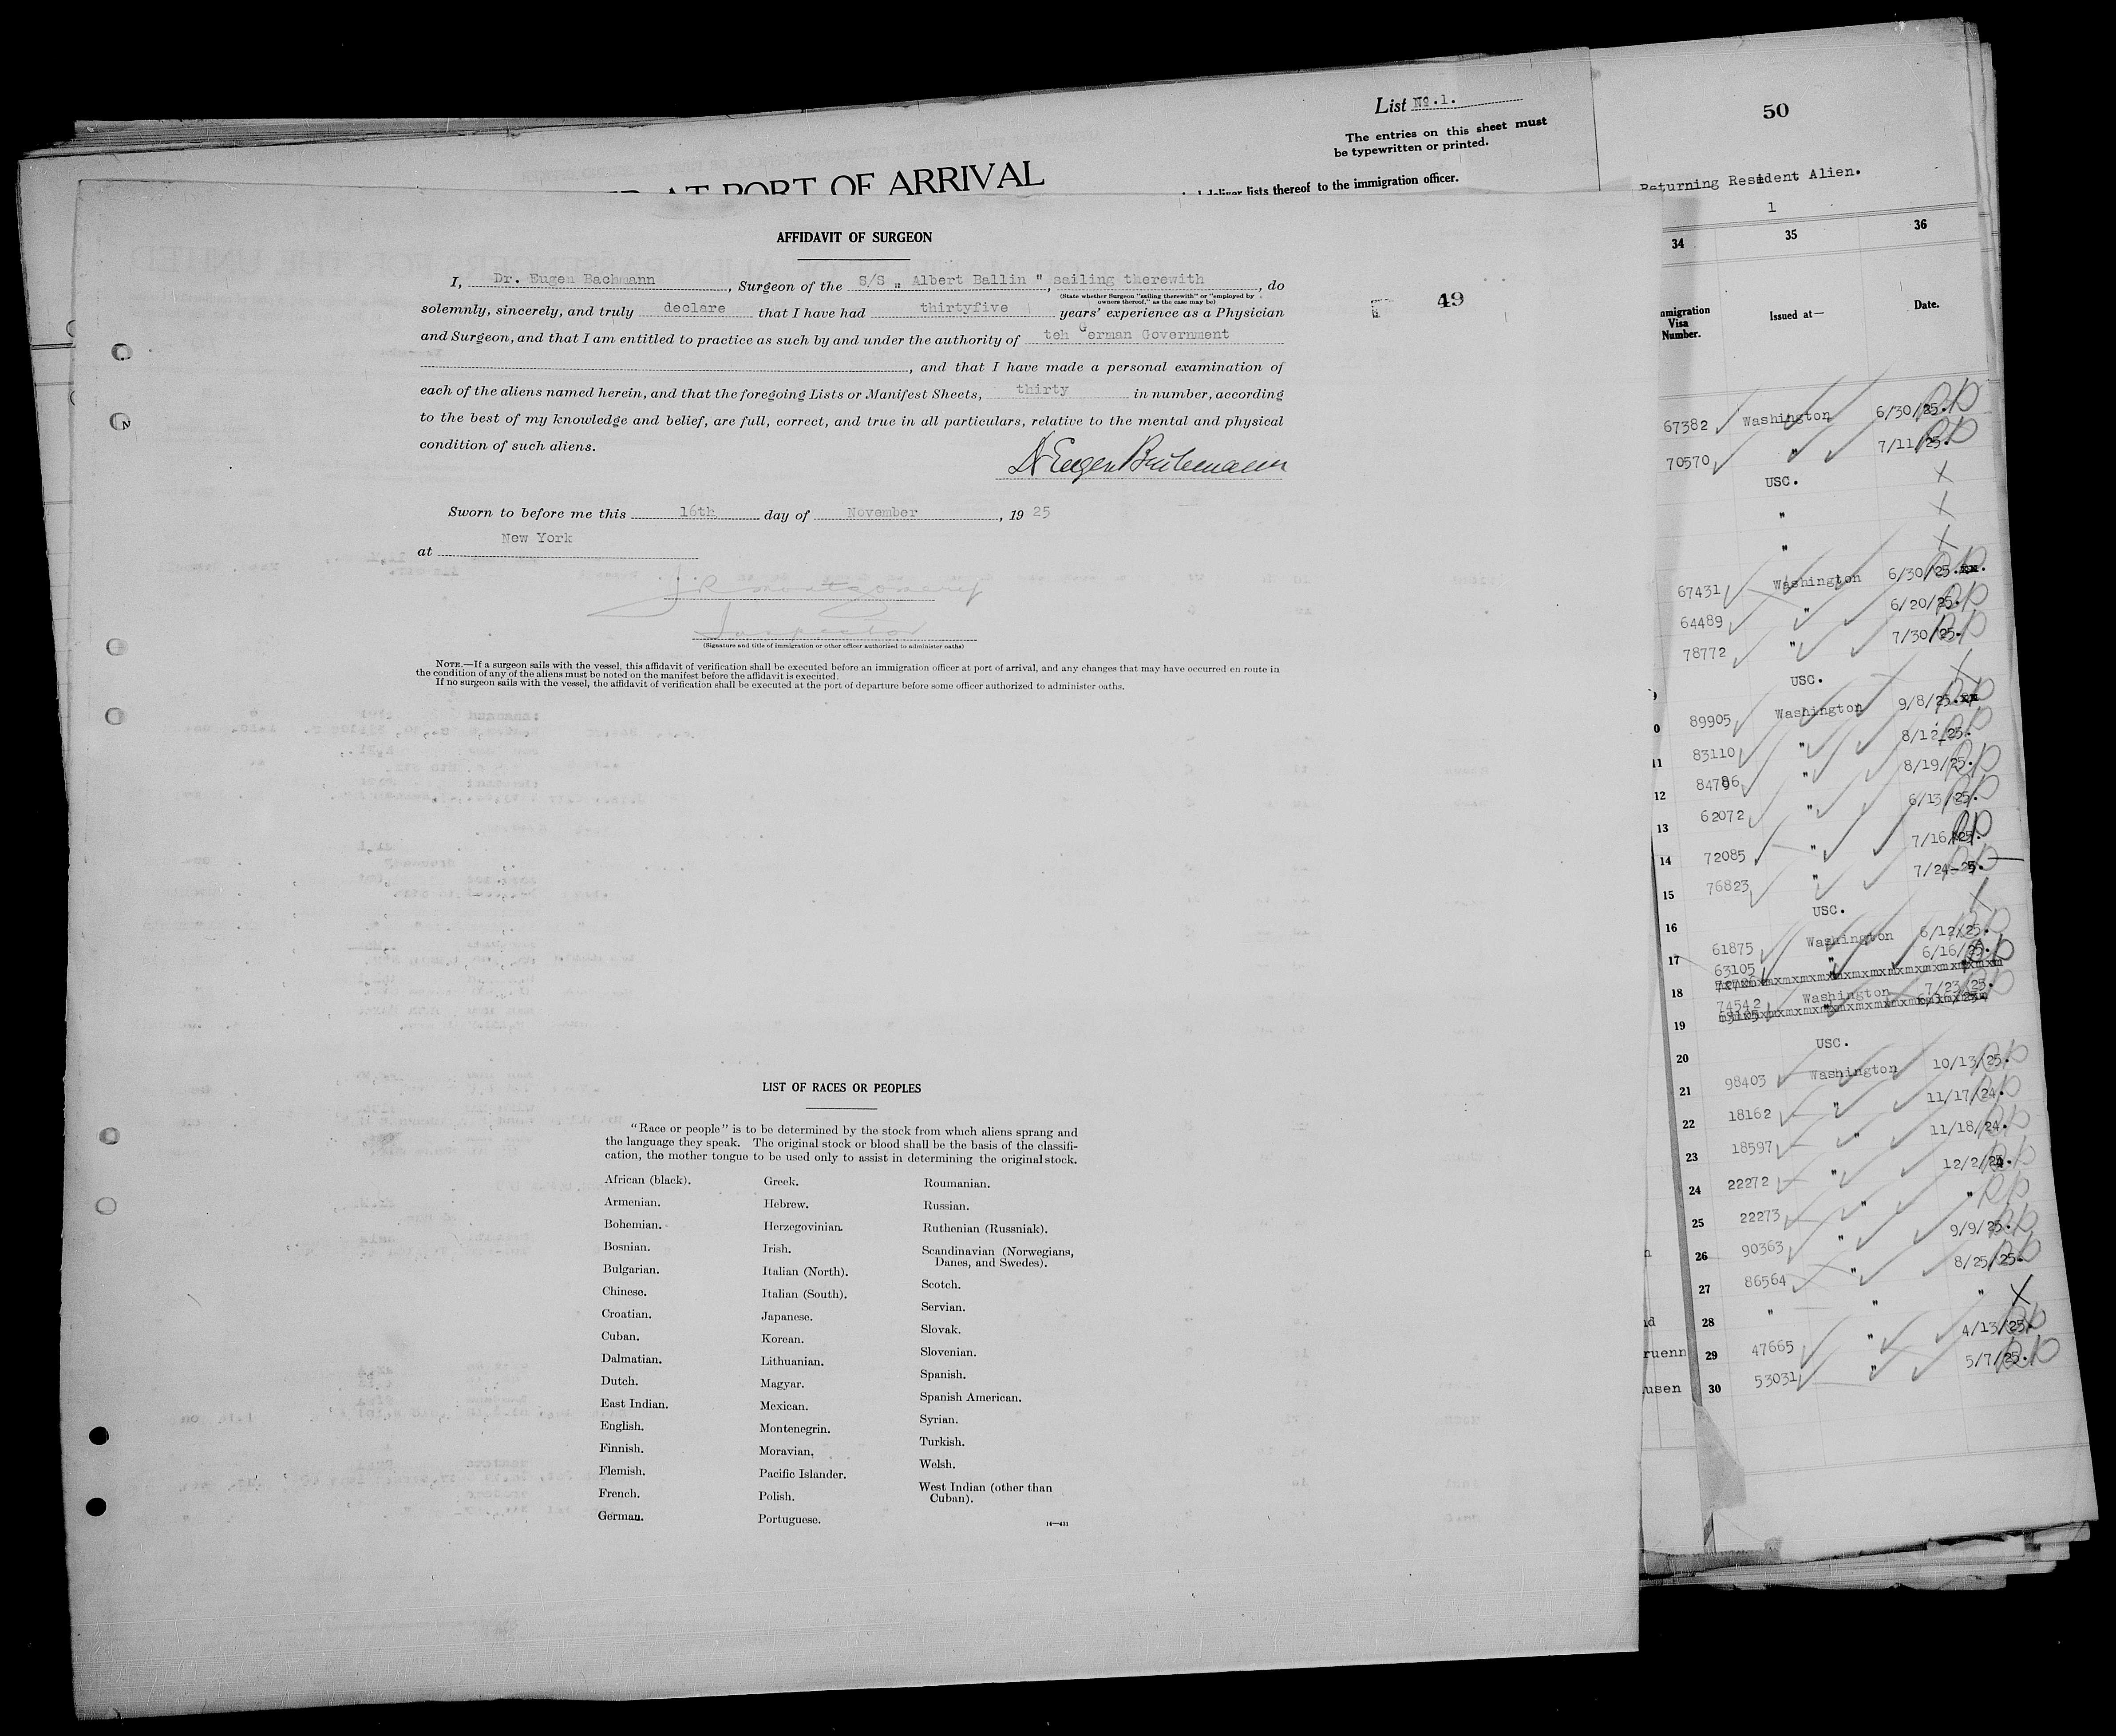 List No.1.
The entries on this sheet must
be typewritten or printed.
AT PORT OF ARRIVAL
deliver lists thereof to the immigration officer.
50
Returning Resident Alien.
1
AFFIDAVIT OF SURGEON
I, Dr. Eugen Bachmann, Surgeon of the S/S „ Albert Ballin ", sailing therewith, do
(State whether Surgeon "sailing therewith" or "employed by
owners thereof," as the case may be)
solemnly, sincerely, and truly declare that I have had thirtyfive years' experience as a Physician
and Surgeon, and that I am entitled to practice as such by and under the authority of teh German Government
, and that I have made a personal examination of
each of the aliens named herein, and that the foregoing Lists or Manifest Sheets, thirty in number, according
to the best of my knowledge and belief, are full, correct, and true in all particulars, relative to the mental and physical
condition of such aliens.
Dr Eugen Bachmann
49
Sworn to before me this 16th day of November, 19 25
at New York
J R Montgomery
Inspector
(Signature and title of immigration or other officer authorized to administer oaths)
NOTE.—If a surgeon sails with the vessel, this affidavit of verification shall be executed before an immigration officer at port of arrival, and any changes that may have occurred en route in
the condition of any of the aliens must be noted on the manifest before the affidavit is executed.
If no surgeon sails with the vessel, the affidavit of verification shall be executed at the port of departure before some officer authorized to administer oaths.
LIST OF RACES OR PEOPLES
"Race or people" is to be determined by the stock from which aliens sprang and
the language they speak. The original stock or blood shall be the basis of the classifi-
cation, the mother tongue to be used only to assist in determining the original stock.
African (black).
Armenian.
Bohemian.
Bosnian.
Bulgarian.
Chinese.
Croatian.
Cuban.
Dalmatian.
Dutch.
East Indian.
English.
Finnish.
Flemish.
French.
German.
Greek.
Hebrew.
Herzegovinian.
Irish.
Italian (North).
Italian (South).
Japanese.
Korean.
Lithuanian.
Magyar.
Mexican.
Montenegrin.
Moravian.
Pacific Islander.
Polish.
Portuguese.
Roumanian.
Russian.
Ruthenian (Russniak).
Scandinavian (Norwegians,
Danes, and Swedes).
Scotch.
Servian.
Slovak.
Slovenian.
Spanish.
Spanish American.
Syrian.
Turkish.
Welsh.
West Indian (other than
Cuban).
14—431
34 35 36
Immigration
Visa
Number.
Issued at—
Date.
67382 Washington 6/30/25.
70570 " 7/11/25.
USC.
"
"
67431 Washington 6/30/25.
64489 " 6/20/25.
78772 " 7/30/25.
USC.
89905 Washington 9/8/25.
83110 " 8/12/25.
11 84786 " 8/19/25.
12 62072 " 6/13/25.
13 72085 " 7/16/25.
14 76823 " 7/24-25.
15 USC.
16 61875 Washington 6/12/25.
17 63105 " 6/16/25.
18 74542 Washington 7/23/25.
19
20 USC.
21 98403 Washington 10/13/25.
22 18162 " 11/17/24.
23 18597 " 11/18/24.
24 22272 " 12/2/24.
25 22273 " "
26 90363 " 9/9/25.
27 86564 " 8/25/25.
28 " " "
ruenn 29 47665 " 4/13/25.
usen 30 53031 " 5/7/25.